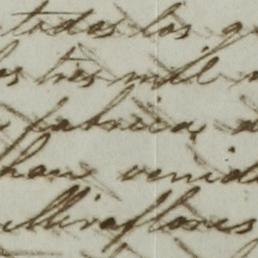 todos los
tres mil
fabrica, a
han venid
Miraflores